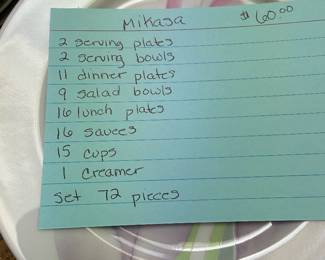 Mikasa $60.00
2 serving plates
2 serving bowls
11 dinner plates
9 salad bowls
16 lunch plates
16 sauces
15 cups
1 creamer
Set 72 pieces